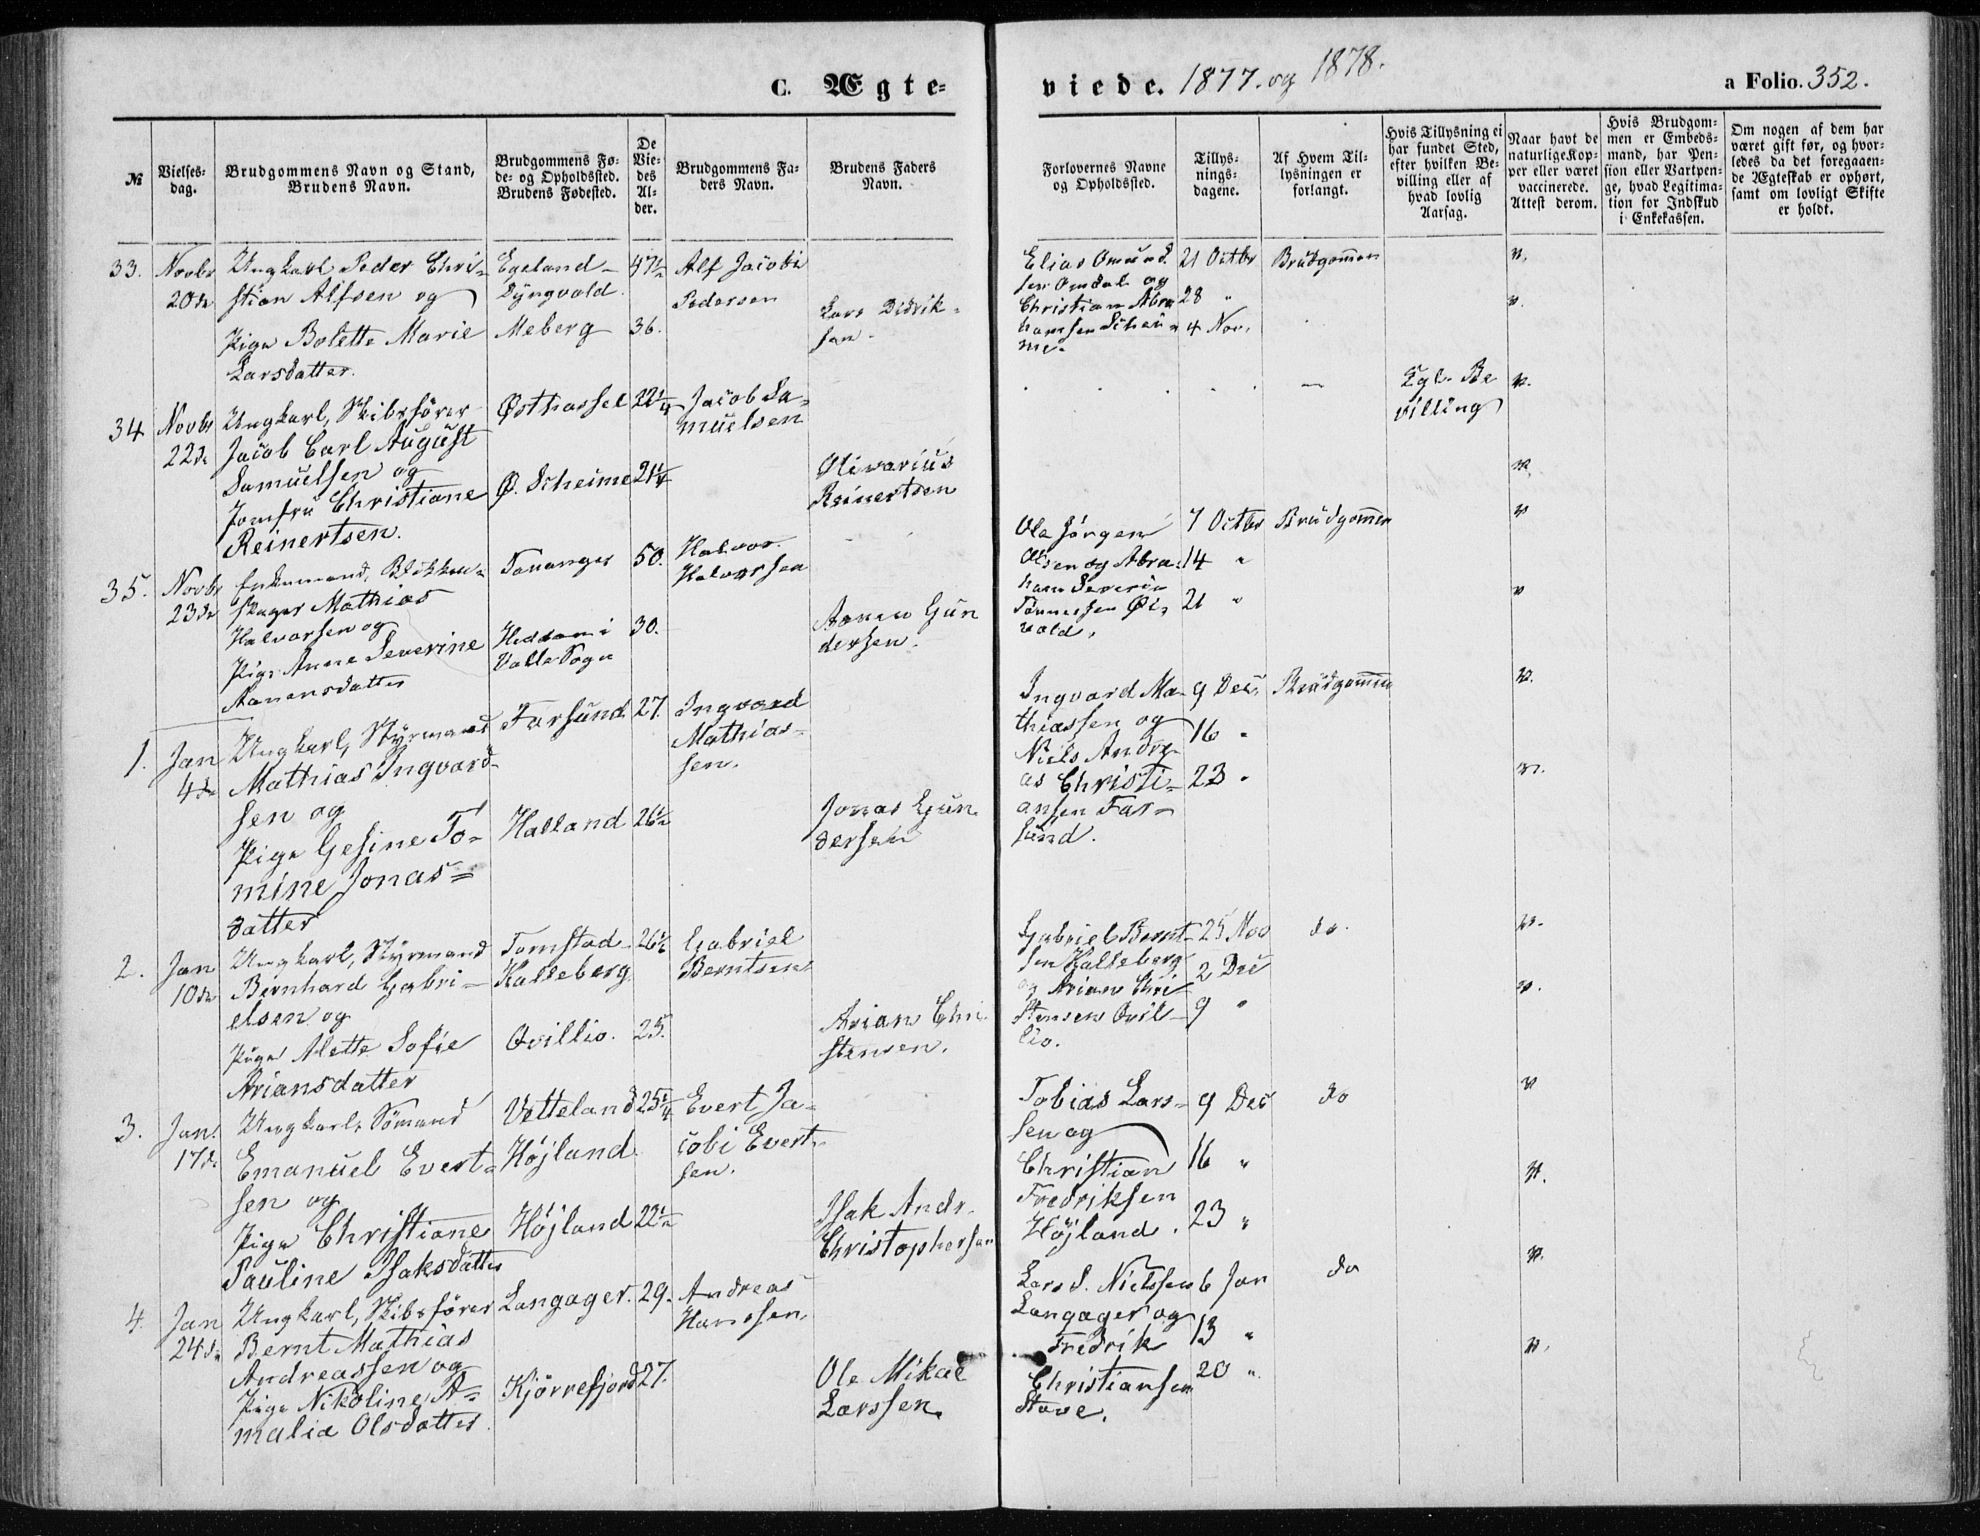 C. Ægte-
viede. 1877. og 1878.
a Folio. 352.
№
Vielses-
dag.
Brudgommens Navn og Stand,
Brudens Navn.
Brudgommens Fø-
de- og Opholdssted.
Brudens Fødested.
De
Vie-
des
Al-
der.
Brudgommens Fa-
ders Navn.
Brudens Faders
Navn.
Forlovernes Navne
og Opholdssted.
Tillys-
nings-
dagene.
Af Hvem Til-
lysningen er
forlangt.
Hvis Tillysning ei
har fundet Sted,
efter hvilken Be-
villing eller af
hvad lovlig
Aarsag.
Naar havt de
naturlige Kop-
per eller været
vaccinerede.
Attest derom.
Hvis Brudgom-
men er Embeds-
mand, har Pen-
sion eller Vartpen-
ge, hvad Legitima-
tion for Indskud
i Enkekassen.
Om nogen af dem har
været gift før, og hvor-
ledes da det foregaaen-
de Ægteskab er ophørt,
samt om lovligt Skifte
er holdt.
33.
Novbr
20de
Ungkarl Peder Chri-
stian Alfsen og
Pige Bolette Marie
Larsdatter.
Egeland
Dyngvold
Meberg
47½
36.
Alf Jacobi
Pedersen
Lars Didrik-
sen.
Elias Omund
sen Omdal og
Christian Abra
hamsen Schei-
me.
21 Octbr
28 "
4 Nov.
Brudgommen
v.
v.
34
Novbr
22de
Ungkarl, Skibsfører
Jacob Carl August
Samuelsen og
Jomfru Christiane
Reinertsen.
Østhassel
Ø. Scheime
22¼
21¼
Jacob Sa-
muelsen
Olivarius
Reinertsen
Kgl. Be
villing
v.
v.
35.
Novbr
23de
Enkemand, Blikken-
slager Mathias
Halvorsen og
Pige Anne Severine
Aanensdatter
Tananger
Heddan i
Valle Sogn
50.
30.
Halvor
Halvorsen
Aanen Gun
dersen.
Ole Jørgen
Olsen og Abra-
ham Severin
Tønnessen Øi-
vold.
7 Octbr
14 "
21 "
Brudgommen
v
v
1.
Jan
4de
Ungkarl, Styrmand
Mathias Ingvard-
sen og
Pige Gesine To-
mine Jonas-
datter
Farsund
Halland
27.
26½
Ingvard
Mathias-
sen.
Jonas Gun
dersen
Ingvard Ma-
thiassen og
Niels Andre-
as Christi-
ansen Far-
sund.
9 Dec.
16 "
23 "
Brudgommen
v.
v.
2.
Jan
10de
Ungkarl, Styrmand
Bernhard Gabri-
elsen og
Pige Alette Sofie
Ariansdatter
Tornstad
Kalleberg
Qvillio.
26½
25.
Gabriel
Berntsen
Arian Chri
stensen.
Gabriel Bernt-
sen Kalleberg
og Arian Chri
stensen Qvil-
lio.
25 Nov
2 Dec
9 "
do.
v.
v.
3.
Jan.
17de
Ungkarl, Sømand
Emanuel Evert-
sen og
Pige Christiane
Pauline Isaksdatter
Vatteland
Højland.
Højland
25¼
22½
Evert Ja-
cobi Evert-
sen.
Isak Andr.
Christophersen
Tobias Lars-
sen og
Christian
Fredriksen
Højland.
9 Dec
16 "
23 "
do
v
v.
4.
Jan
24de
Ungkarl, Skibsfører
Bernt Mathias
Andreassen og
Pige Nikoline A-
malia Olsdatter
Langager.
Kjørrefjord
29.
27.
Andreas
Hanssen.
Ole Mikal
Larssen.
Lars S. Nielssen
Langager og
Fredrik
Christiansen
Stave.
6 Jan
13 "
20 "
do
v.
v.